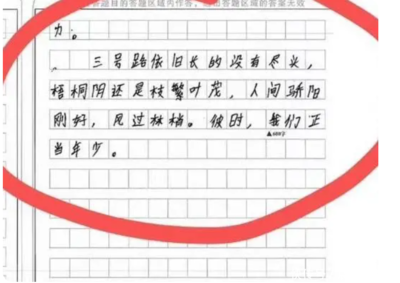 答题目的答题区域内作答，超出答题区域的答案无效
力。
三号路依旧长的没有尽头，
梧桐阴还是枝繁叶茂，人间骄阳
刚好，风过林梢。彼时，我们正
当年少。